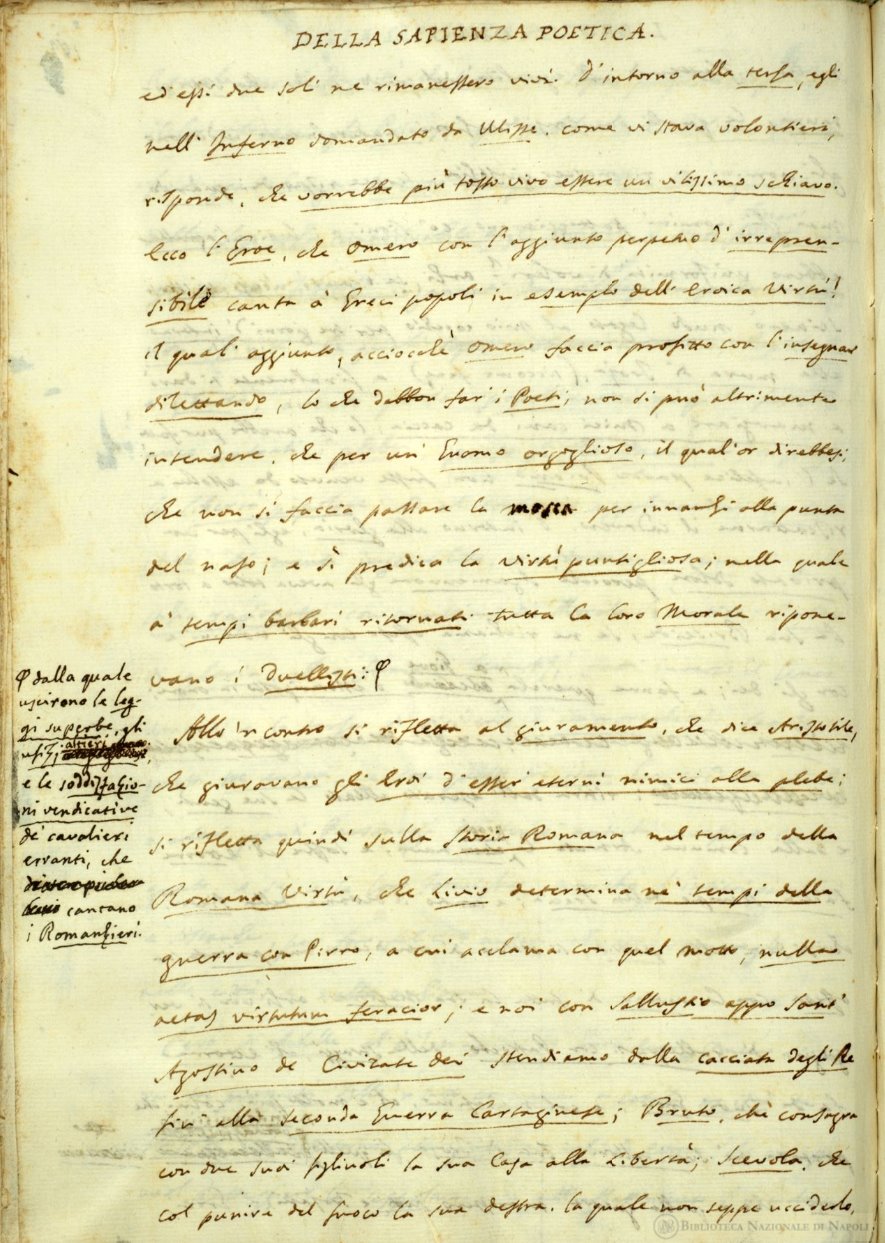 DELLA SAPIENZA POETICA.
ed essi due soli ne rimanessero vivi. D'intorno alla terza, egli
nell' Inferno domandato da Ulisse, come vi stava volontieri,
risponde, che vorrebbe più tosto vivo essere un vilissimo schiavo.
Ecco l'Eroe, che Omero con l'aggiunto perpetuo d'irrepren-
sibile canta a' Greci popoli in esempio dell' Eroica Virtù!
il qual' aggiunto, acciocchè Omero faccia profitto con l'insegnar
dilettando, lo che debbon far' i Poeti, non si può altrimente
intendere, che per un' Huomo orgoglioso, il qual'or direbbesi,
che non si faccia passare la mosca per innanzi alla punta
del naso; e sì predica la virtù puntigliosa; nella quale
a' tempi barbari ritornati tutta la loro Morale ripone-
vano i Duellisti:
φ dalla quale
uscirono le leg-
gi superbe, gli
ufizj altieri
e le soddisfazio-
ni vendicative
de' cavalieri
erranti, che
cantano
i Romanzieri.
Allo 'ncontro si rifletta al giuramento, che dice Aristotile,
che giuravano gli Eroi d'esser' eterni nimici alla plebe;
si rifletta quindi sulla Storia Romana nel tempo della
Romana Virtù, che Livio determina ne' tempi della
guerra con Pirro, a cui acclama con quel motto, nulla
aetas virtutum feracior; e noi con Sallustio appo Sant'
Agostino de Civitate dei stendiamo dalla cacciata degli Re
fin' alla seconda Guerra Cartaginese; Bruto, che consagra
con due suoi figliuoli la sua Casa alla Libertà; Scevola, che
col punire del fuoco la sua destra, la quale non seppe ucciderlo,
BIBLIOTECA NAZIONALE DI NAPOLI